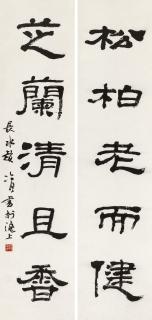 松柏老而健
芝蘭清且香
長水張
書於滬上